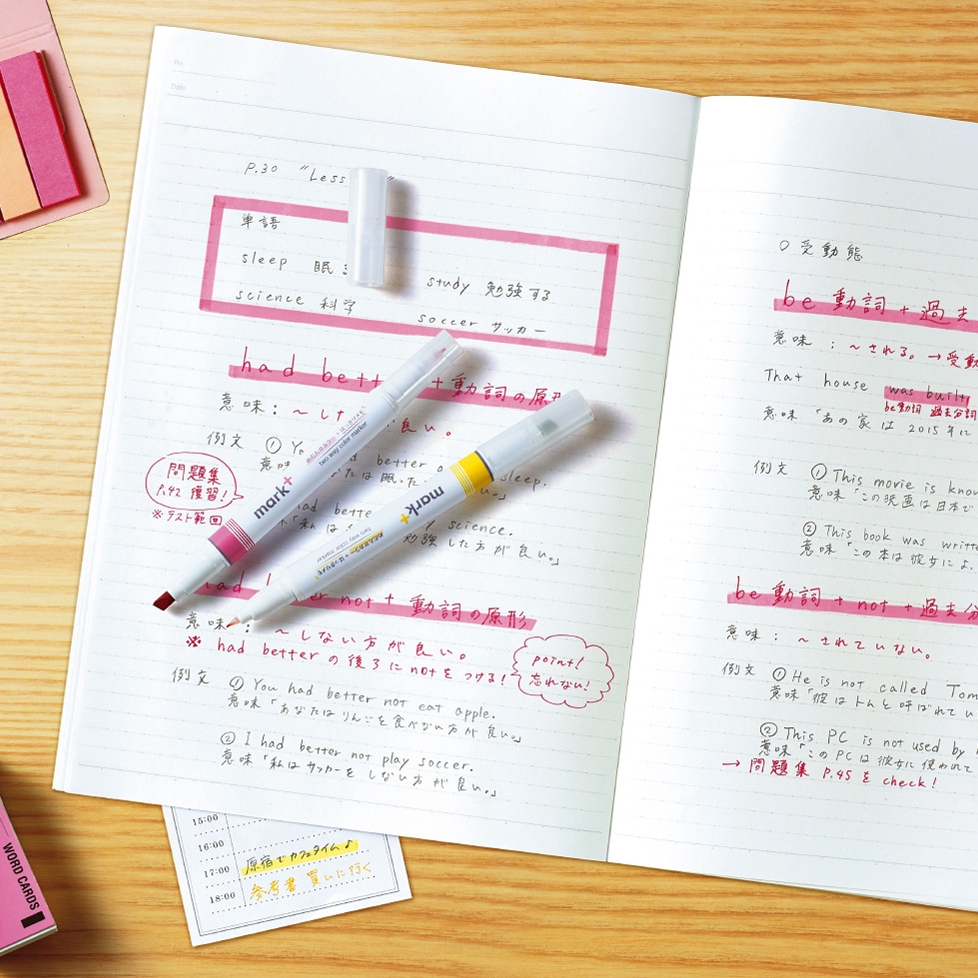 No.
Date
P.30 "Less
単語
sleep 眠
study 勉強する
science 科学
soccer サッカー
had bett + 動詞の原形
意味：～した 良い。
例文 ① Yo had better sleep.
意味 たは眠った い。」
問題集
P.42 復習！
※テスト範囲
had bette y science.
「私は 勉強した方が良い。」
had better not + 動詞の原形
意味：～しない方が良い。
※ had better の後ろに notを つける！
point!
忘れない！
例文 ① You had better not eat apple.
意味「あなたはりんごを食べない方が良い。」
② I had better not play soccer.
意味「私はサッカーをしない方が良い。」
mark+
two way color marker
mark+
two way color marker
○受動態
be 動詞 + 過去
意味：～される。→受動
That house was built
be動詞 過去分詞
意味「あの家は2015年に
例文 ① This movie is know
意味「この映画は日本で
② This book was writte
意味「この本は彼女によ
be 動詞 + not + 過去分
意味：～されていない。
例文 ① He is not called Tom
意味「彼はトムと呼ばれてい
② This PC is not used by
意味「このPCは彼女に使われて
→ 問題集 P.45 を check！
15:00
16:00
17:00 原宿でカフェタイム♪
18:00 参考書 買いに行く
WORD CARDS